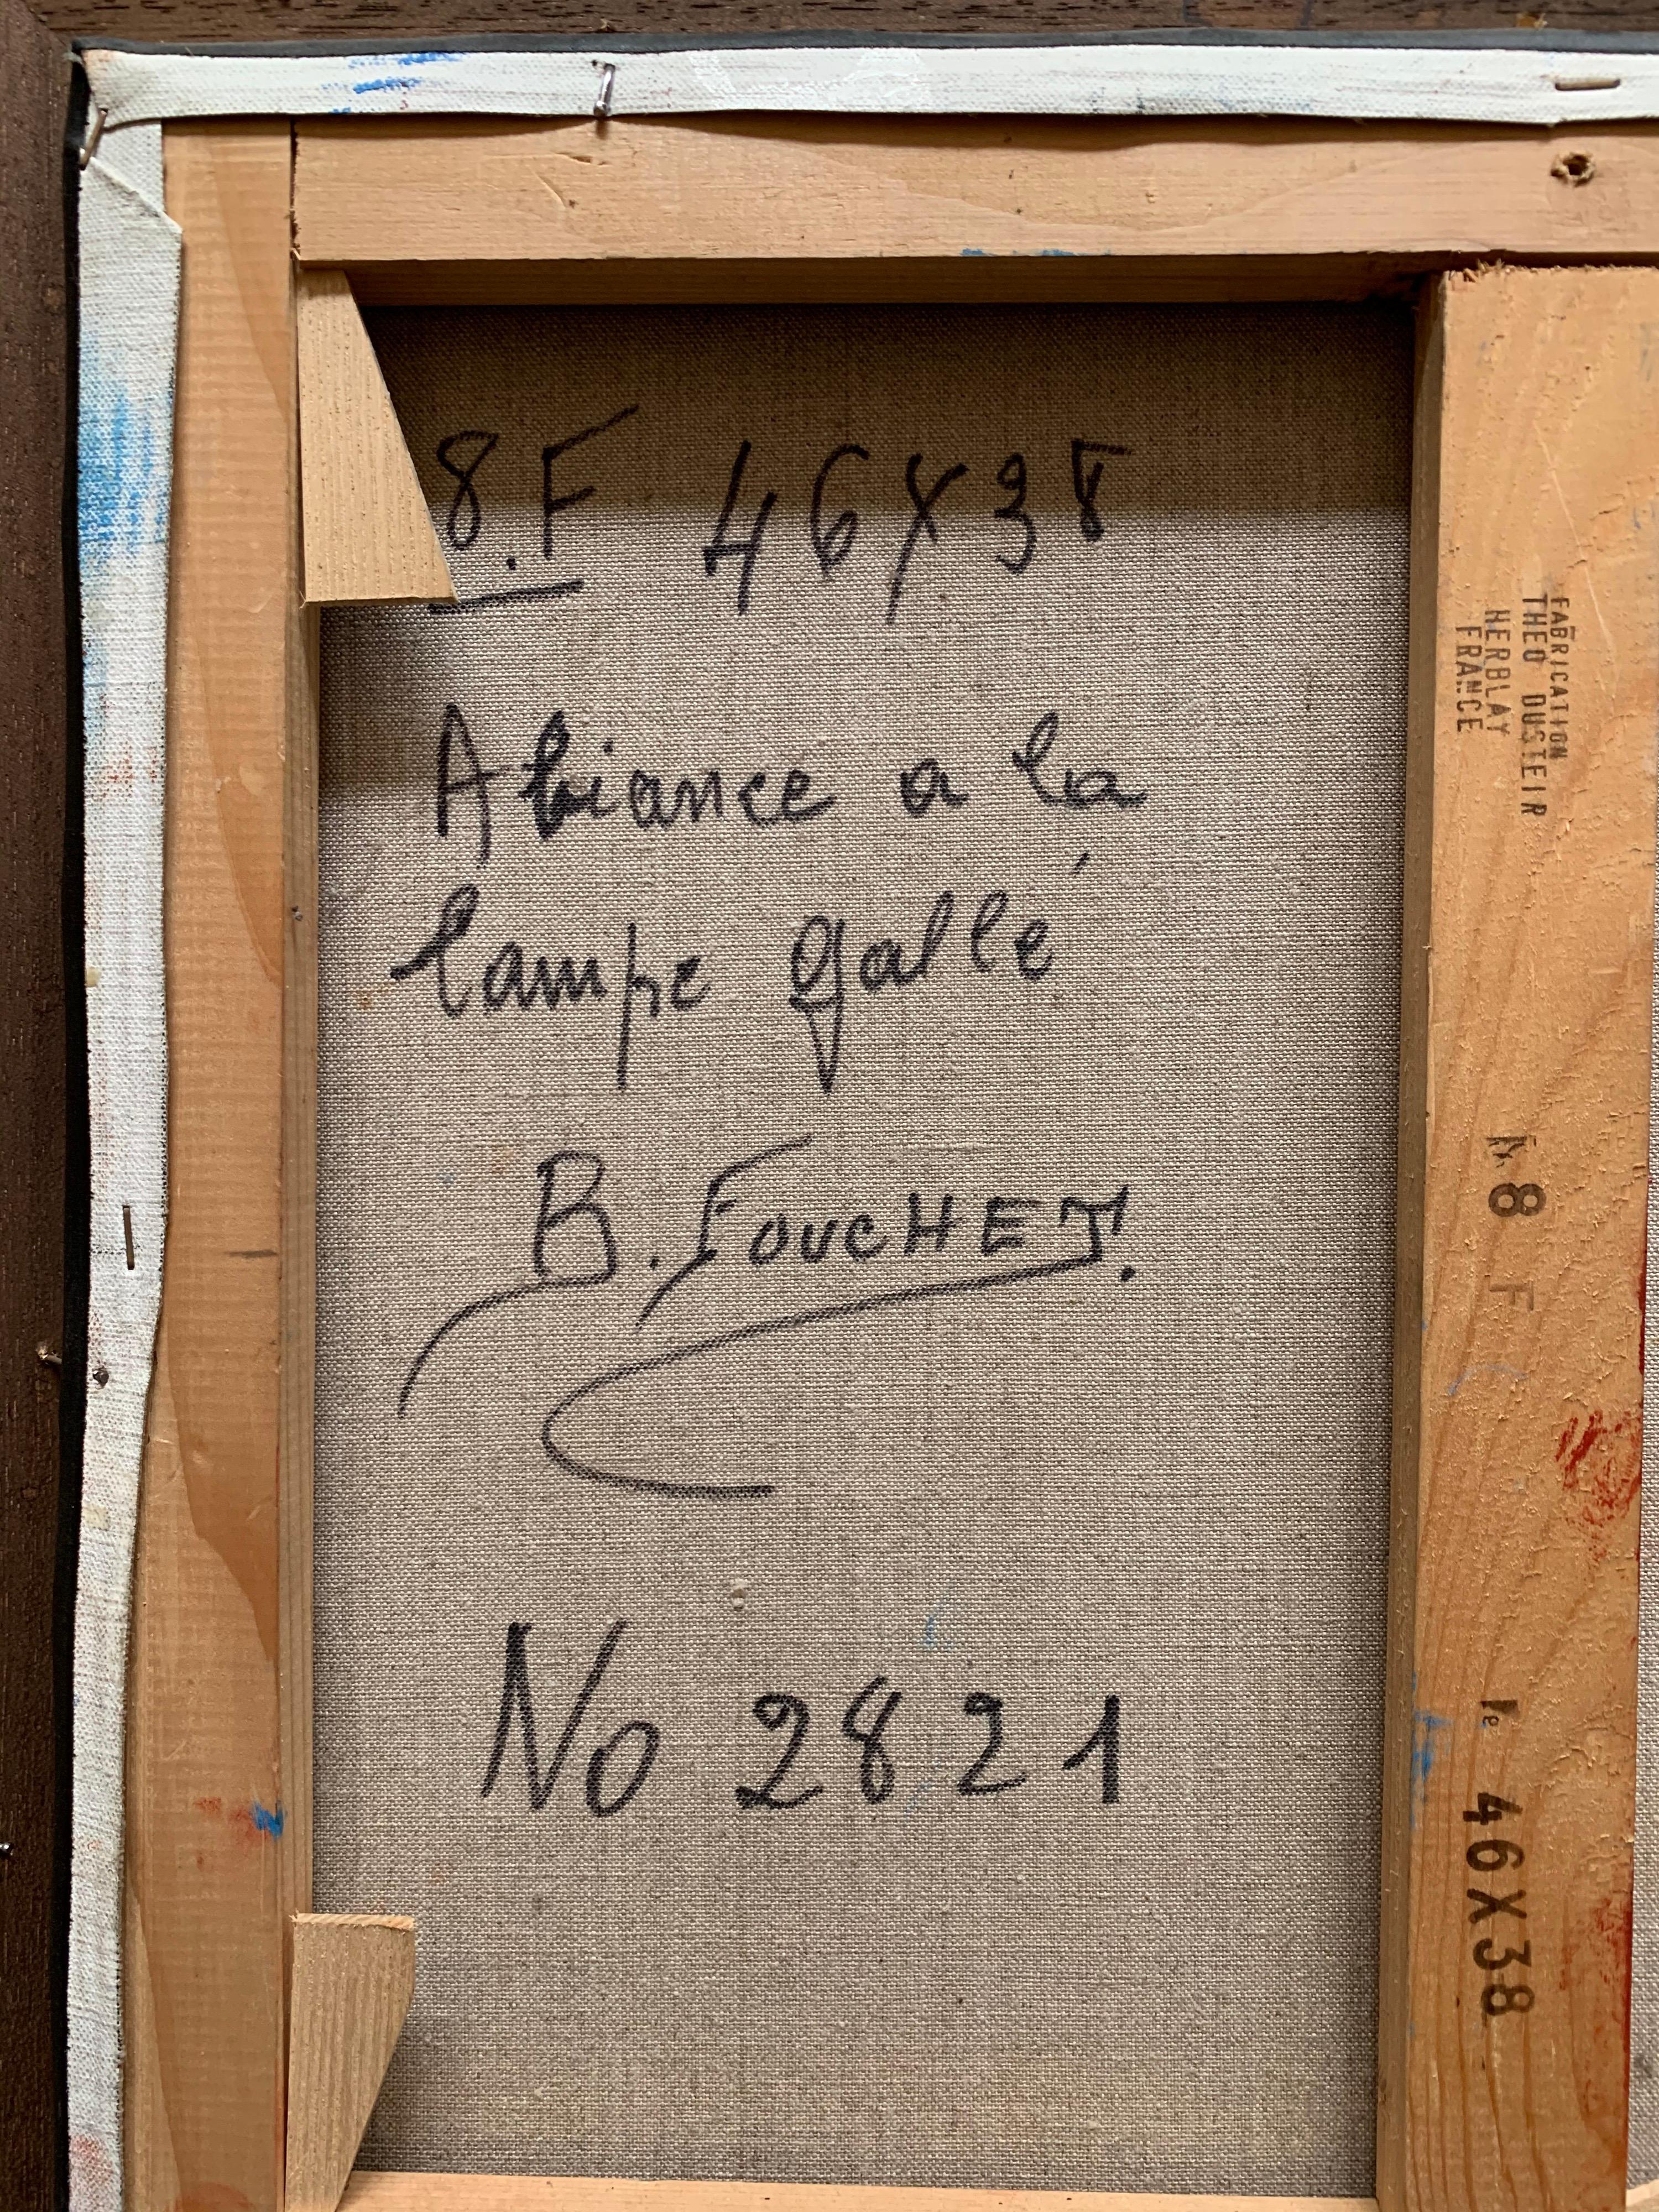 8.F 46X38
Abiance a la
lampe gallé
B. FOUCHET.
No 2821
FABRICATION
THEO DUSTEIR
HERBLAY
FRANCE
8 F
46X38